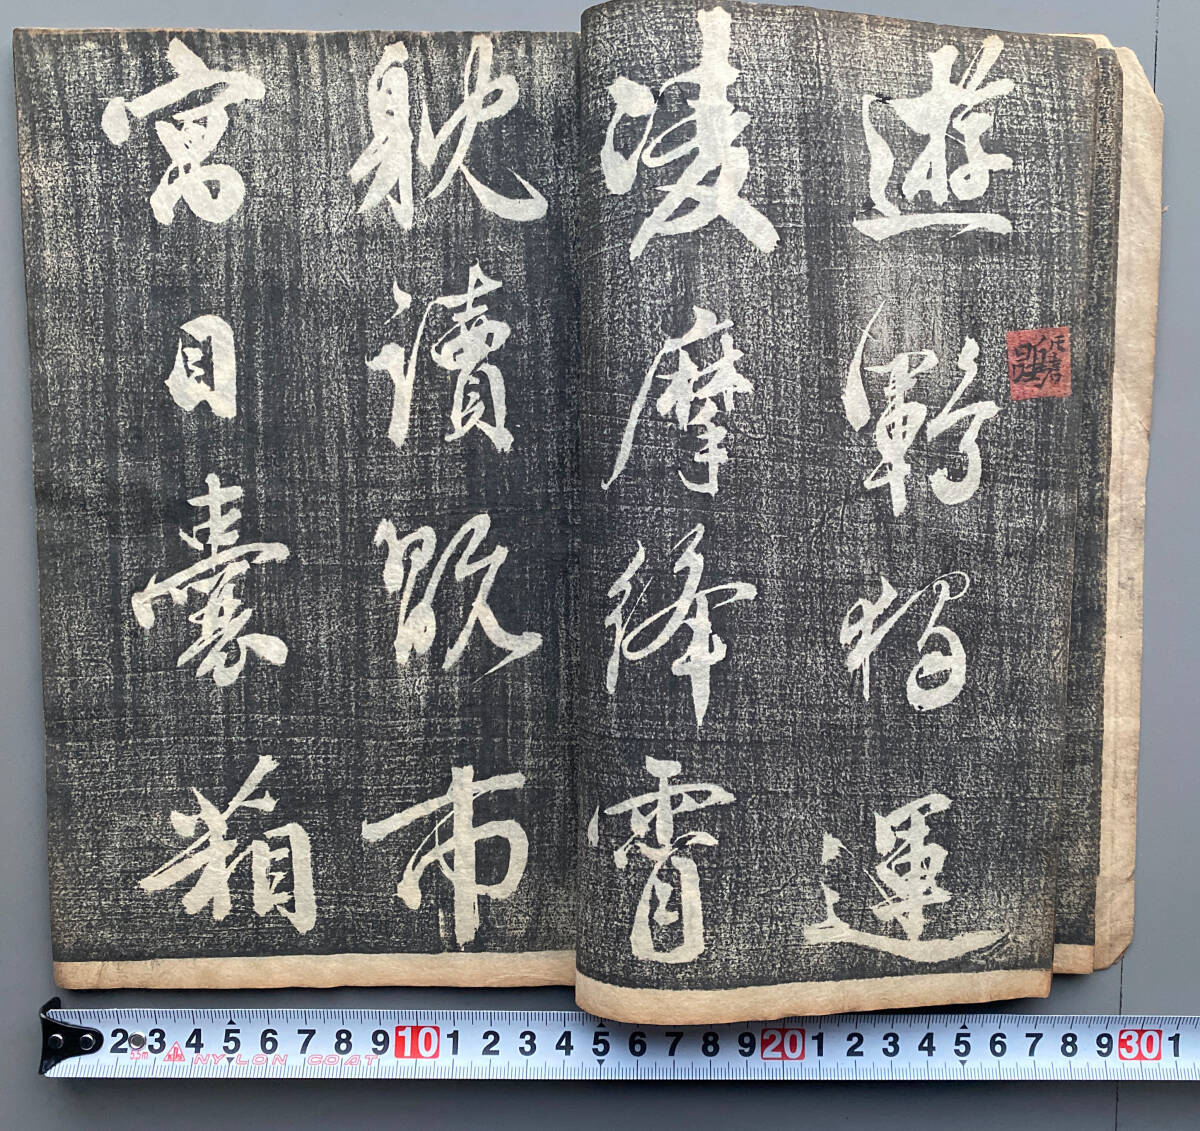 遊鶤獨運
凌摩絳霄
躭讀翫市
寓目囊箱
2 3 4 5 6 7 8 9 10 1 2 3 4 5 6 7 8 9 20 1 2 3 4 5 6 7 8 9 30 1
5.5m NYLON COAT